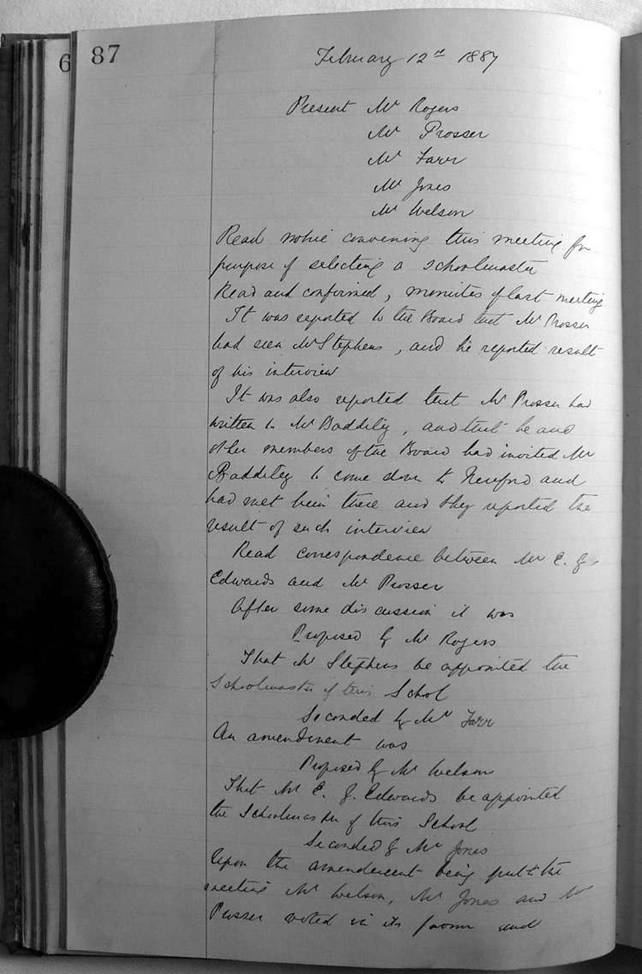 6 87
February 12th 1887
Present Mr Rogers
Mr Prosser
Mr Farr
Mr Jones
Mr Welson
Read notice convening this meeting for
purpose of selecting a schoolmaster
Read and confirmed, minutes of last meeting
It was reported to the Board that Mr Prosser
had seen Mr Stephens, and he reported result
of his interview
It was also reported that Mr Prosser had
written to Mr Baddiley, and that he and
other members of the Board had invited Mr
Baddiley to come down to Hereford and
had met him there and they reported the
result of such interview
Read correspondence between Mr E. J.
Edwards and Mr Prosser
After some discussion it was
Proposed by Mr Rogers
That Mr Stephens be appointed the
Schoolmaster of this School
Seconded by Mr Farr
An amendment was
Proposed by Mr Welson
That Mr E. J. Edwards be appointed
the Schoolmaster of this School
Seconded by Mr Jones
Upon the amendment being put to the
meeting Mr Welson, Mr Jones and Mr
Prosser voted in its favour and